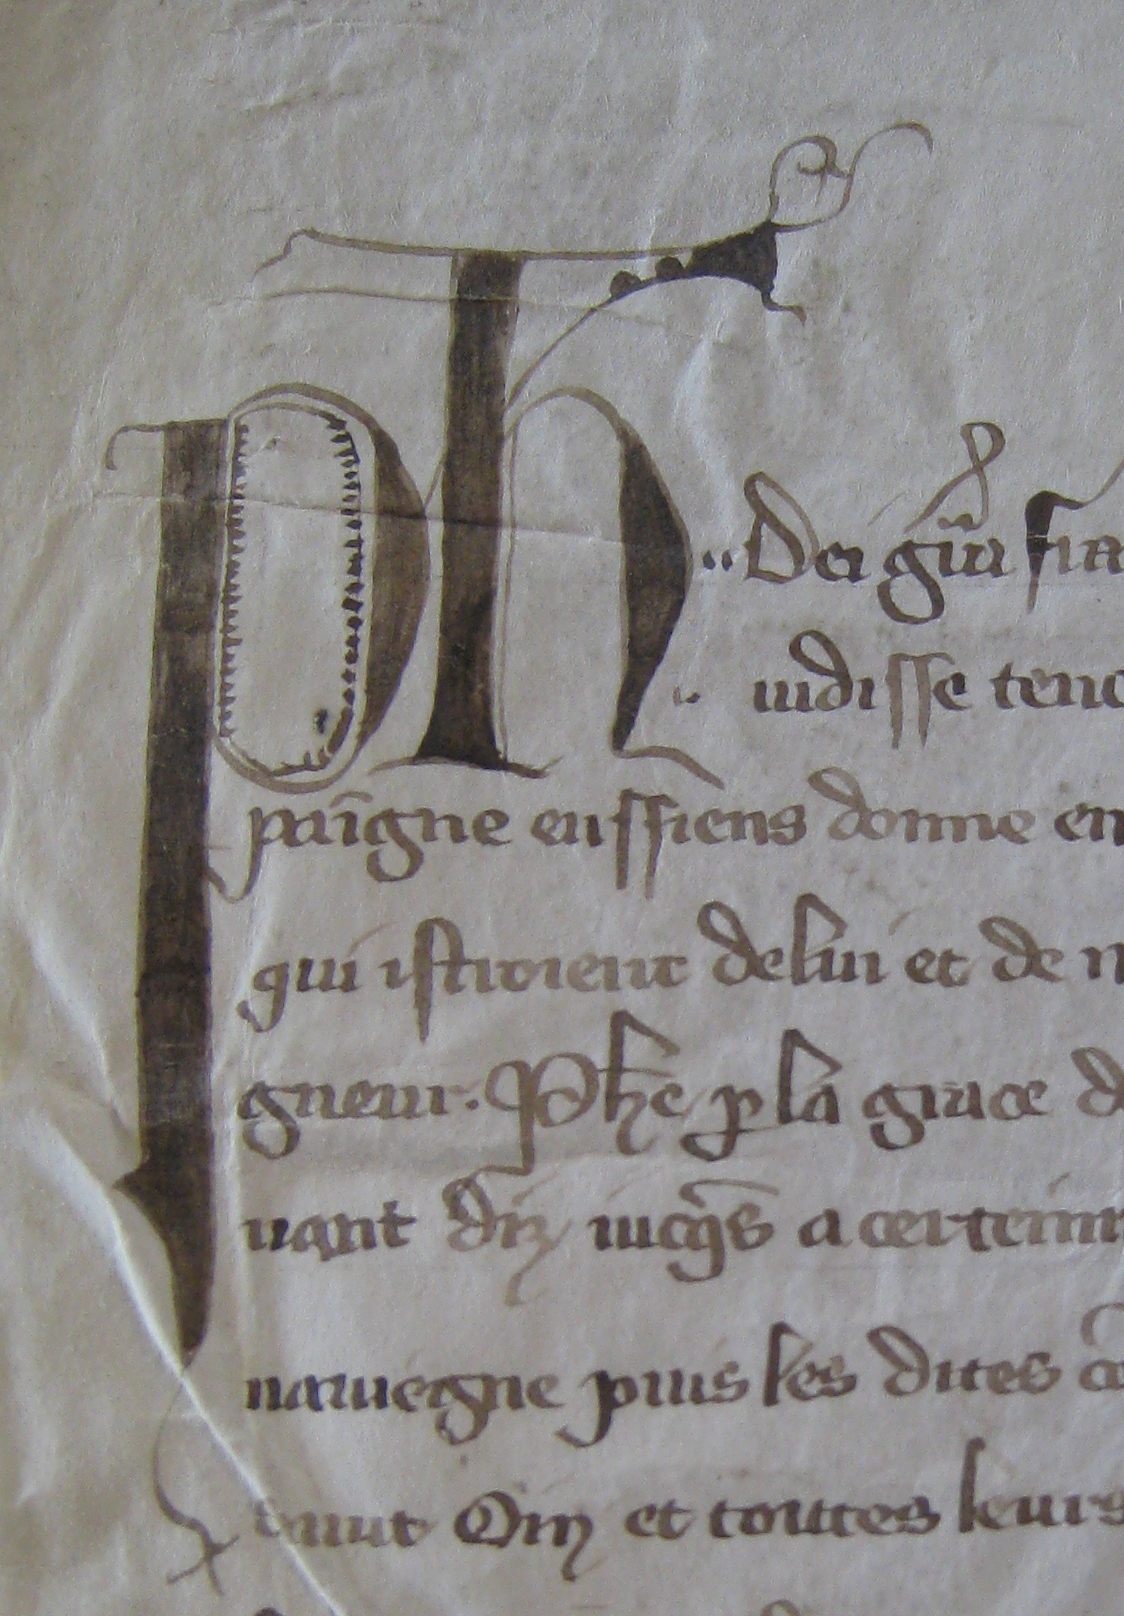 Ph .. Dei grã fra
.. iudisse tenc
paĩgne eussiens donne en
qui istroient de lui et de n
gneur. Phe p la grace d
uant diz iucqs a certeinn
nauieigne puis les dites cõ
et toutes leurs